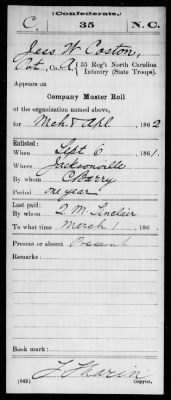 (Confederate.)
C. 35 N.C.
Jess W Coston,
Pvt, Co. A, 35 Reg't North Carolina
Infantry (State Troops).
Appears on
Company Muster Roll
of the organization named above,
for Mch & Apl, 1862
Enlisted:
When Sept 6, 1861.
Where Jacksonville
By whom C Barry
Period one year
Last paid:
By whom Q.M. Sinclair
To what time March 1, 186 .
Present or absent Present
Remarks:
Book mark:
(642) Copyist.